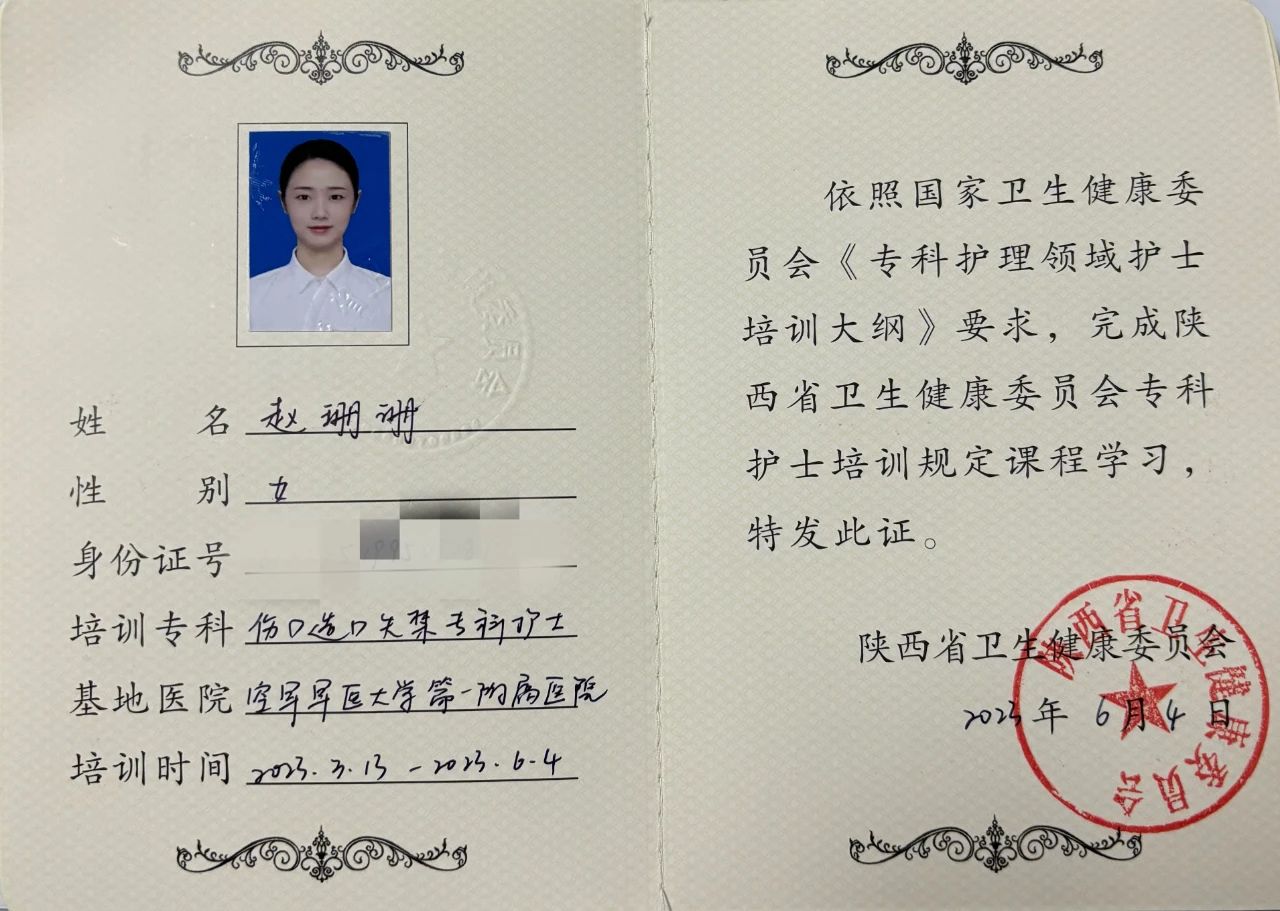 姓名 赵珊珊
性别 女
身份证号
培训专科 伤口造口失禁专科护士
基地医院 空军军医大学第一附属医院
培训时间 2023.3.13-2023.6.4
依照国家卫生健康委
员会《专科护理领域护士
培训大纲》要求，完成陕
西省卫生健康委员会专科
护士培训规定课程学习，
特发此证。
陕西省卫生健康委员会
2023年6月4日
陕西省卫生健康委员会